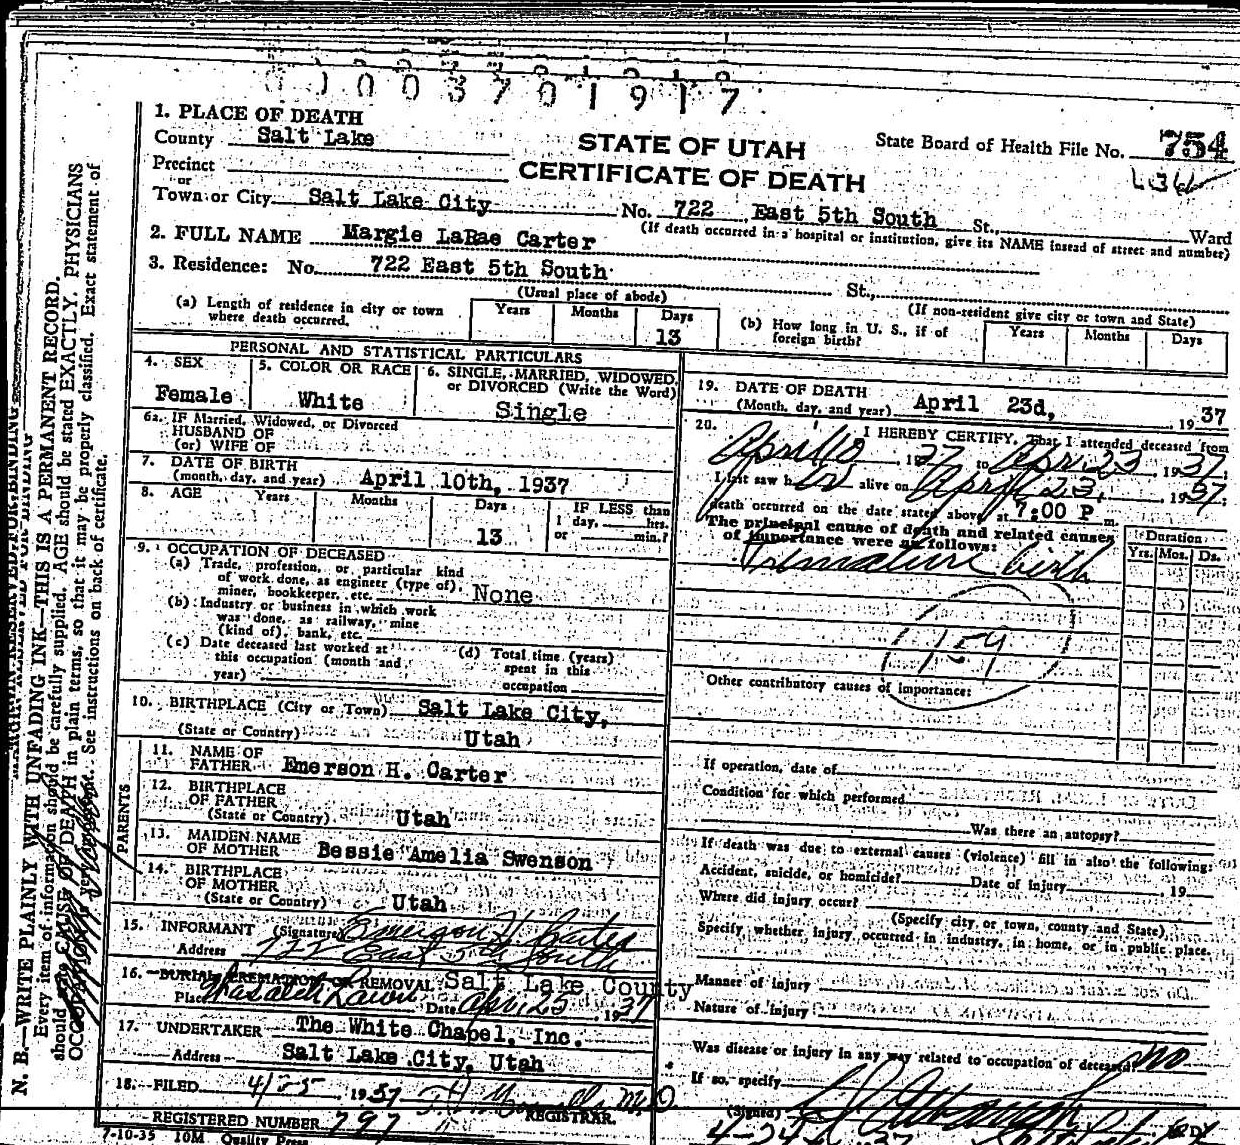 1 0 0 3 7 0 1 9 1 7
1. PLACE OF DEATH
County Salt Lake
STATE OF UTAH
CERTIFICATE OF DEATH
State Board of Health File No. 754
Precinct
or
Town or City Salt Lake City No. 722 East 5th South St., Ward
(If death occurred in a hospital or institution, give its NAME instead of street and number)
2. FULL NAME Margie LaRae Carter
3. Residence: No. 722 East 5th South St.,
(Usual place of abode)
(If non-resident give city or town and State)
(a) Length of residence in city or town where death occurred.
Years Months Days
13
(b) How long in U. S., if of foreign birth?
Years Months Days
PERSONAL AND STATISTICAL PARTICULARS
4. SEX
Female
5. COLOR OR RACE
White
6. SINGLE, MARRIED, WIDOWED, or DIVORCED (Write the Word)
Single
6a. IF Married, Widowed, or Divorced
HUSBAND OF
(or) WIFE OF
7. DATE OF BIRTH
(month, day, and year) April 10th, 1937
8. AGE Years Months Days IF LESS than
13
1 day, hrs.
or min.?
9. OCCUPATION OF DECEASED
(a) Trade, profession, or particular kind
of work done, as engineer (type of),
miner, bookkeeper, etc. None
(b) Industry or business in which work
was done, as railway, mine
(kind of), bank, etc.
(c) Date deceased last worked at
this occupation (month and
year)
(d) Total time (years)
spent in this
occupation
10. BIRTHPLACE (City or Town) Salt Lake City,
(State or Country) Utah
PARENTS
11. NAME OF
FATHER Emerson H. Carter
12. BIRTHPLACE
OF FATHER
(State or Country) Utah
13. MAIDEN NAME
OF MOTHER Bessie Amelia Swenson
14. BIRTHPLACE
OF MOTHER
(State or Country) Utah
15. INFORMANT (Signature) Emerson H. Carter
Address 722 East 5th South
16. BURIAL, CREMATION OR REMOVAL Salt Lake County
Place Wasatch Lawn Date Apr. 25 1937
17. UNDERTAKER The White Chapel, Inc.
Address Salt Lake City, Utah
18. FILED 4/25 1937
M.D.
REGISTRAR.
REGISTERED NUMBER 797
7-10-35 10M Quality Press
19. DATE OF DEATH
(Month, day, and year) April 23d, 1937
20. I HEREBY CERTIFY, That I attended deceased from
April 10 1937 to Apr. 23 1937
I last saw her alive on April 23, 1937
death occurred on the date stated above, at 7:00 P m.
The principal cause of death and related causes
of importance were as follows:
Duration
Yrs. Mos. Ds.
Premature birth
159
Other contributory causes of importance:
If operation, date of
Condition for which performed
Was there an autopsy?
If death was due to external causes (violence) fill in also the following:
Accident, suicide, or homicide? Date of injury , 19
Where did injury occur?
(Specify city or town, county and State)
Specify whether injury occurred in industry, in home, or in public place.
Manner of injury
Nature of injury
Was disease or injury in any way related to occupation of deceased? no
If so, specify
(Signed)
4-24 37
N. B.—WRITE PLAINLY WITH UNFADING INK—THIS IS A PERMANENT RECORD.
Every item of information should be carefully supplied. AGE should be stated EXACTLY. PHYSICIANS
should state CAUSE OF DEATH in plain terms, so that it may be properly classified. Exact statement of
OCCUPATION is very important. See instructions on back of certificate.